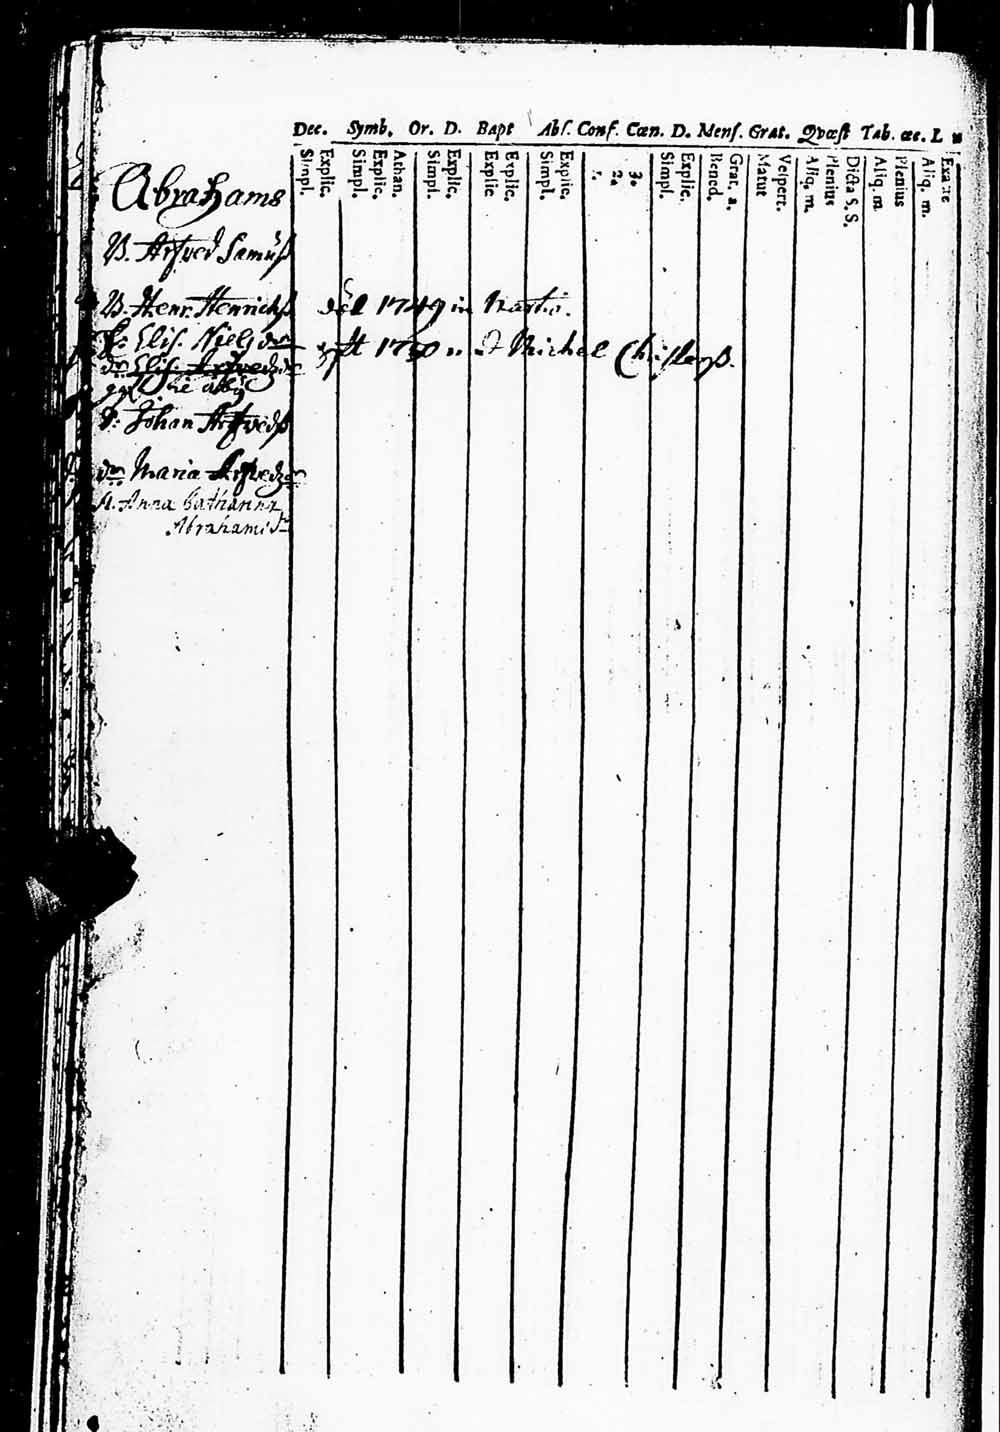 Dec. Symb. Or. D. Bapt Abs. Conf. Cœn. D. Mens. Grat. Qvæst Tab. œc. L
Simpl. Explic. Simpl. Explic. Athan. Simpl. Explic. Explic Explic. Simpl. Explic. 1. 2. 3. Simpl. Explic. Bened. Grat. a. Matut Vespert. Aliq. m. Plenius Dicta S. S. Aliq. m Plenius Aliq. m. Exacte
Abrahams
B. Arfved Samuß
B. Henr. Henrichß död 1749 in Martio.
H: Elis. Nielsdr 1750 Michel Christerß.
dr. Elis. Arfvedzdr
S: Johan Arfvedß
dr Maria Arfvedzdr
H. Anna Catharina
Abrahamsdr